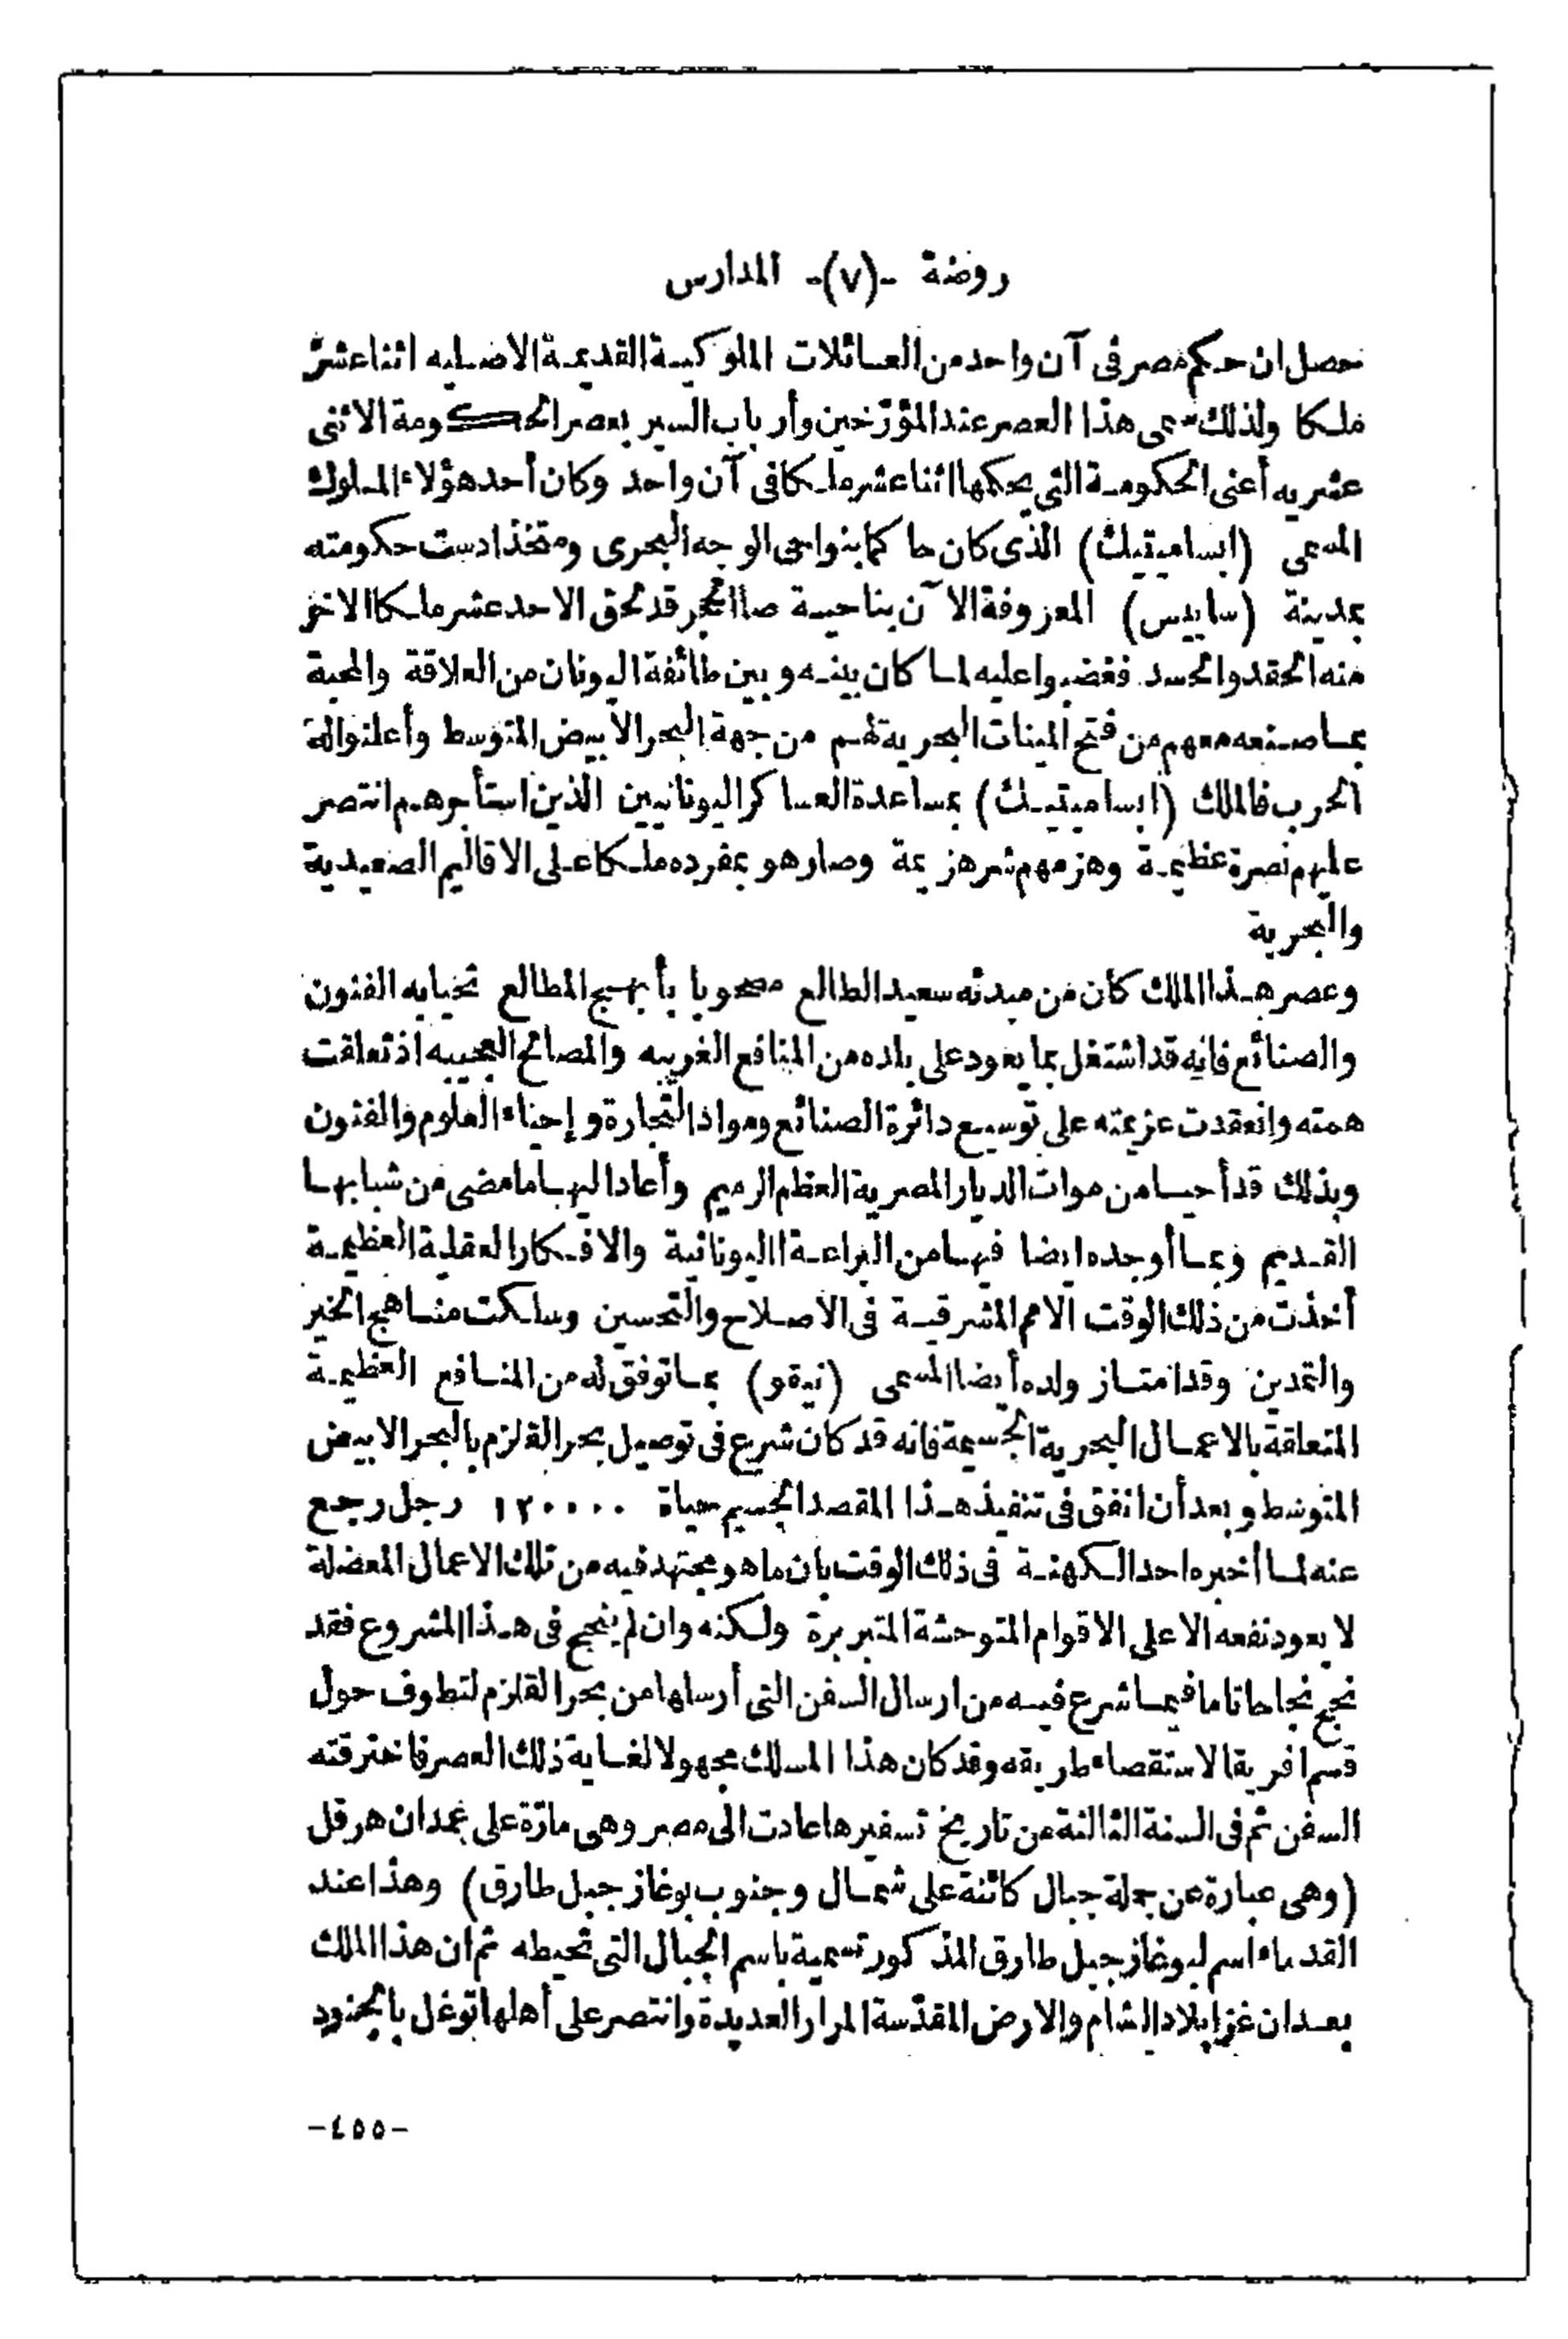 روضة -(٧)- المدارس
حصل ان حكم مصر فى آن واحد من العائلات الملوكية القديمة الاصليه اثنا عشر
ملكا ولذلك سمى هذا العصر عند المؤرّخين وأرباب السير بعصر الحكومة الاثنى
عشريه أعنى الحكومة التى يحكمها اثنا عشر ملكا فى آن واحد وكان أحد هؤلاء الملوك
المسمى (ابساميتيك) الذى كان حاكما بنواحى الوجه البحرى ومتخذا دست حكومته
بمدينة (ساييس) المعروفة الآن بناحية صا الحجر قد لحق الاحد عشر ملكا الاخر
منه الحقد والحسد فغضبوا عليه لما كان بينه وبين طائفة اليونان من العلاقة والمحبة
بما صنعه معهم من فتح المينات البحرية لهم من جهة البحر الأبيض المتوسط وأعلنوا له
الحرب فالملك (ابساميتيك) بمساعدة العساكر اليونانيين الذين استأجرهم انتصر
عليهم نصرة عظيمة وهزمهم شر هزيمة وصار هو بمفرده ملكا على الاقاليم الصعيدية
والبحرية
وعصر هذا الملك كان من مبدئه سعيد الطالع مصحوبا بأبهج المطالع تحيا به الفنون
والصنائع فانه قد اشتغل بما يعود على بلده من المنافع الغريبه والمصالح العجيبه اذ تعلقت
همته وانعقدت عزيمته على توسيع دائرة الصنائع ومواد التجارة وإحياء العلوم والفنون
وبذلك قد أحيا من موات الديار المصرية العظم الرميم وأعاد اليها ما مضى من شبابها
القديم وبما أوجده ايضا فيها من البراعة اليونانية والافكار العقلية العظيمة
أخذت من ذلك الوقت الامم المشرقية فى الاصلاح والتحسين وسلكت مناهج الخير
والتمدين وقد امتاز ولده أيضا المسمى (نيقو) بما توفق له من المنافع العظيمة
المتعلقة بالاعمال البحرية الجسيمة فانه قد كان شرع فى توصيل بحر القلزم بالبحر الابيض
المتوسط وبعد أن انفق فى تنفيذ هذا المقصد الجسيم حياة ١٢٠٠٠٠ رجل رجع
عنه لما أخبره احد الكهنة فى ذلك الوقت بان ما هو مجتهد فيه من تلك الاعمال المعضلة
لا يعود نفعه الا على الاقوام المتوحشة المتبربرة ولكنه وان لم ينجح فى هذا المشروع فقد
نجح نجاحا تاما فيما شرع فيه من ارسال السفن التى أرسلها من بحر القلزم لتطوف حول
قسم افريقا لاستقصاء طريقه وقد كان هذا المسلك مجهولا لغاية ذلك العصر فاخترقته
السفن ثم فى السنة الثالثة من تاريخ تسفيرها عادت الى مصر وهى مارّة على عمدان هرقل
(وهى عبارة عن جملة جبال كائنة على شمال وجنوب بوغاز جبل طارق) وهذا عند
القدماء اسم لبوغاز جبل طارق المذكور تسمية باسم الجبال التى تحيطه ثم ان هذا الملك
بعد ان غزا بلاد الشام والارض المقدّسة المرار العديدة وانتصر على أهلها توغل بالجنود
-٤٥٥-